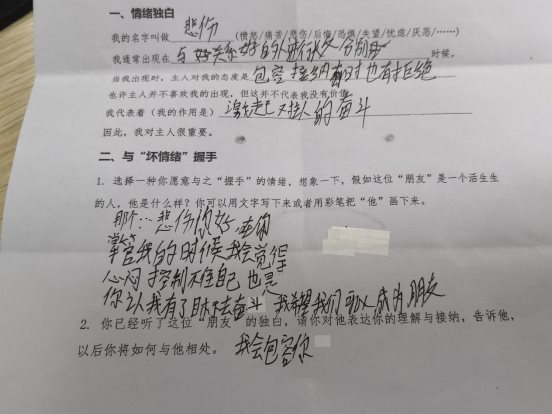 一、情绪独白
我的名字叫做 悲伤 (愤怒/痛苦/悲伤/后悔/恐惧/失望/忧虑/厌恶/……)
我通常出现在 与好关系好的人进行 分别 时候。
当我出现时，主人对我的态度是 包容接纳有时也有拒绝
也许主人并不喜欢我的出现，但这并不代表我没有价值
我代表着（我的作用是） 激起 人的奋斗
因此，我对主人很重要。
二、与“坏情绪”握手
1. 选择一种你愿意与之“握手”的情绪，想象一下，假如这位“朋友”是一个活生生
的人，他是什么样？你可以用文字写下来或者用彩笔把“他”画下来。
那个… 悲伤你好，在你
掌管我的时候我会觉得
心闷 控制不住自己 也是
你让我有了目标去奋斗 我希望我们可以成为朋友
2. 你已经听了这位“朋友”的独白，请你对他表达你的理解与接纳，告诉他，
以后你将如何与他相处。 我会包容你